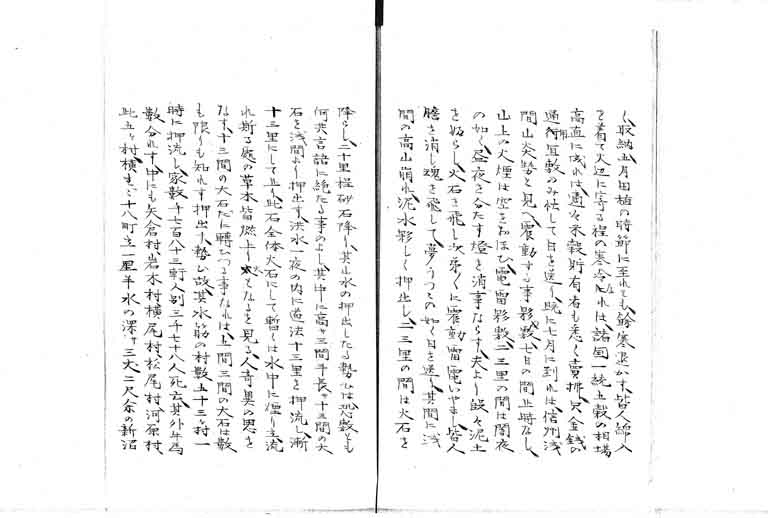 し取納五月田植の時節に至れとも餘寒退かす皆人綿入
を着て火辺に寄る程の寒冷なれは諸國一統五穀の相場
高直に成れは遠々米穀貯有者も悉く賣拂只金銭の
通行耳敷のみ忙して日を送り既に七月に到れは信州浅
間山炎勢と見へ震動する事夥敷七日の間止時なし
山上の火煙は空をおほひ電雷夥敷二三里の間は闇夜
の如く昼夜を分たす燈を消事ならす夫より段々泥土
をぬらし火石を飛し次第くに震動雷電いやまし皆人
膽を消し魂を飛して夢うつつの如く日を送り其間に浅
間の高山崩れ泥水夥しく押出し二三里の間は火石を
降らし二十里程砂石降り其山水の押出したる勢ひは恐敷とも
何共言語に絶たる事のよし其中に高サ三間半長サ十三間の大
石を浅間より押出す洪水一夜の内に道法十三里を押流し漸
十三里にして止り此石全体火石にして暫くは水中に煙り立流
れ断る處の草木皆燃上り火となるを見る人奇異の思を
なす十三間の大石たに轉ひつる事なれは二間三間の大石は数
も限りも知れす押出す勢ひ故其水筋の村数五十三ケ村一
時に押流し家数千七百八十三軒人別三千七十八人死亡其外牛馬
数分れす中にも矢倉村岩本村横尾村松尾村河原村
此五ケ村横はゝ十八町立一里半水の深サ三丈二尺余の新沼